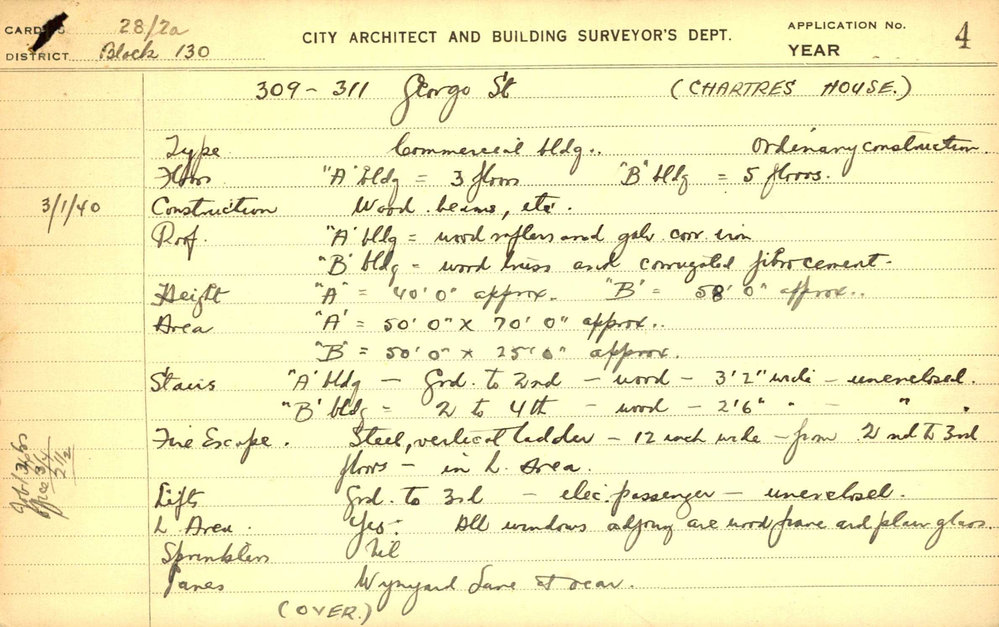 CARD No. 28/2a
CITY ARCHITECT AND BUILDING SURVEYOR'S DEPT.
APPLICATION No.
YEAR
4
DISTRICT Block 130
309 - 311 George St (CHARTRES HOUSE.)
Type Commercial bldg.. Ordinary construction.
Floors "A" bldg = 3 floors "B" bldg = 5 floors.
3/1/40 Construction Wood beams, etc.
Roof. "A" bldg = wood rafters and galv. corr. iron
"B" bldg = wood truss and corrugated fibrocement.
Height "A" = 40' 0" approx. "B" = 58' 0" approx..
Area "A" = 50' 0" x 70' 0" approx..
"B" = 50' 0" x 25' 0" approx.
Stairs "A" bldg - Grd. to 2nd - wood - 3' 2" wide - unenclosed.
"B" bldg = 2 to 4th - wood - 2' 6" " - " .
Fire Escape. Steel, vertical ladder - 12 inch wide - from 2nd to 3rd
floors - in L. Area.
Lifts Grd. to 3rd - elec. passenger - unenclosed.
L Area. Yes: All windows adjong are wood frame and plain glass.
Sprinklers Nil
Lanes Wynyard Lane at rear.
(OVER.)